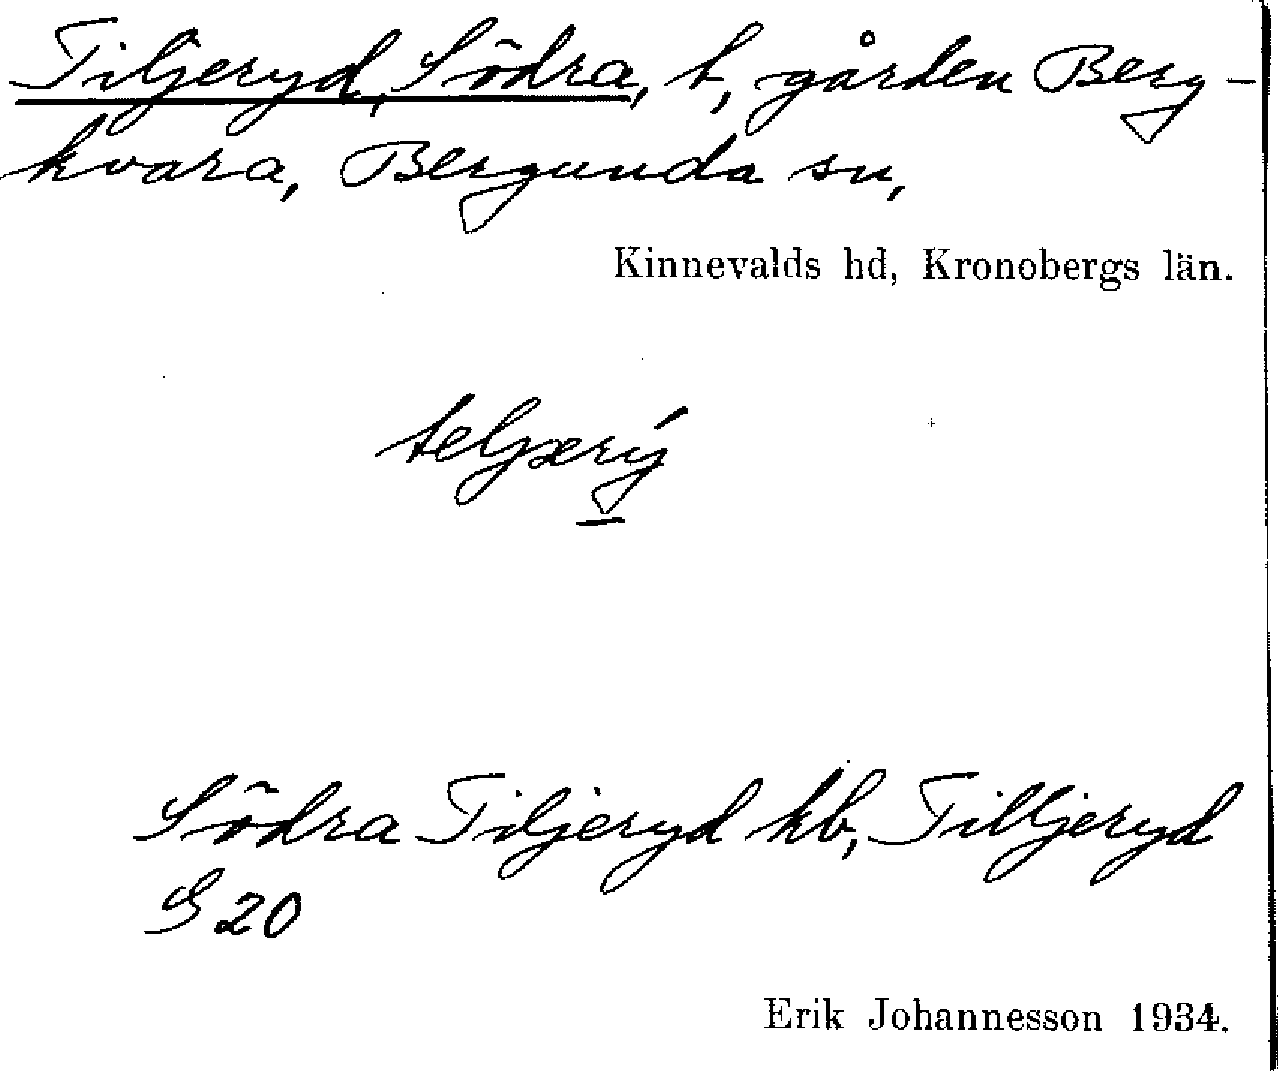 Tiljeryd, Södra, t, gården Berg-
kvara, Bergunda sn,
Kinnevalds hd, Kronobergs län.
teljxrý
Södra Tiljeryd kb, Tilljeryd
G 20
Erik Johannesson 1934.